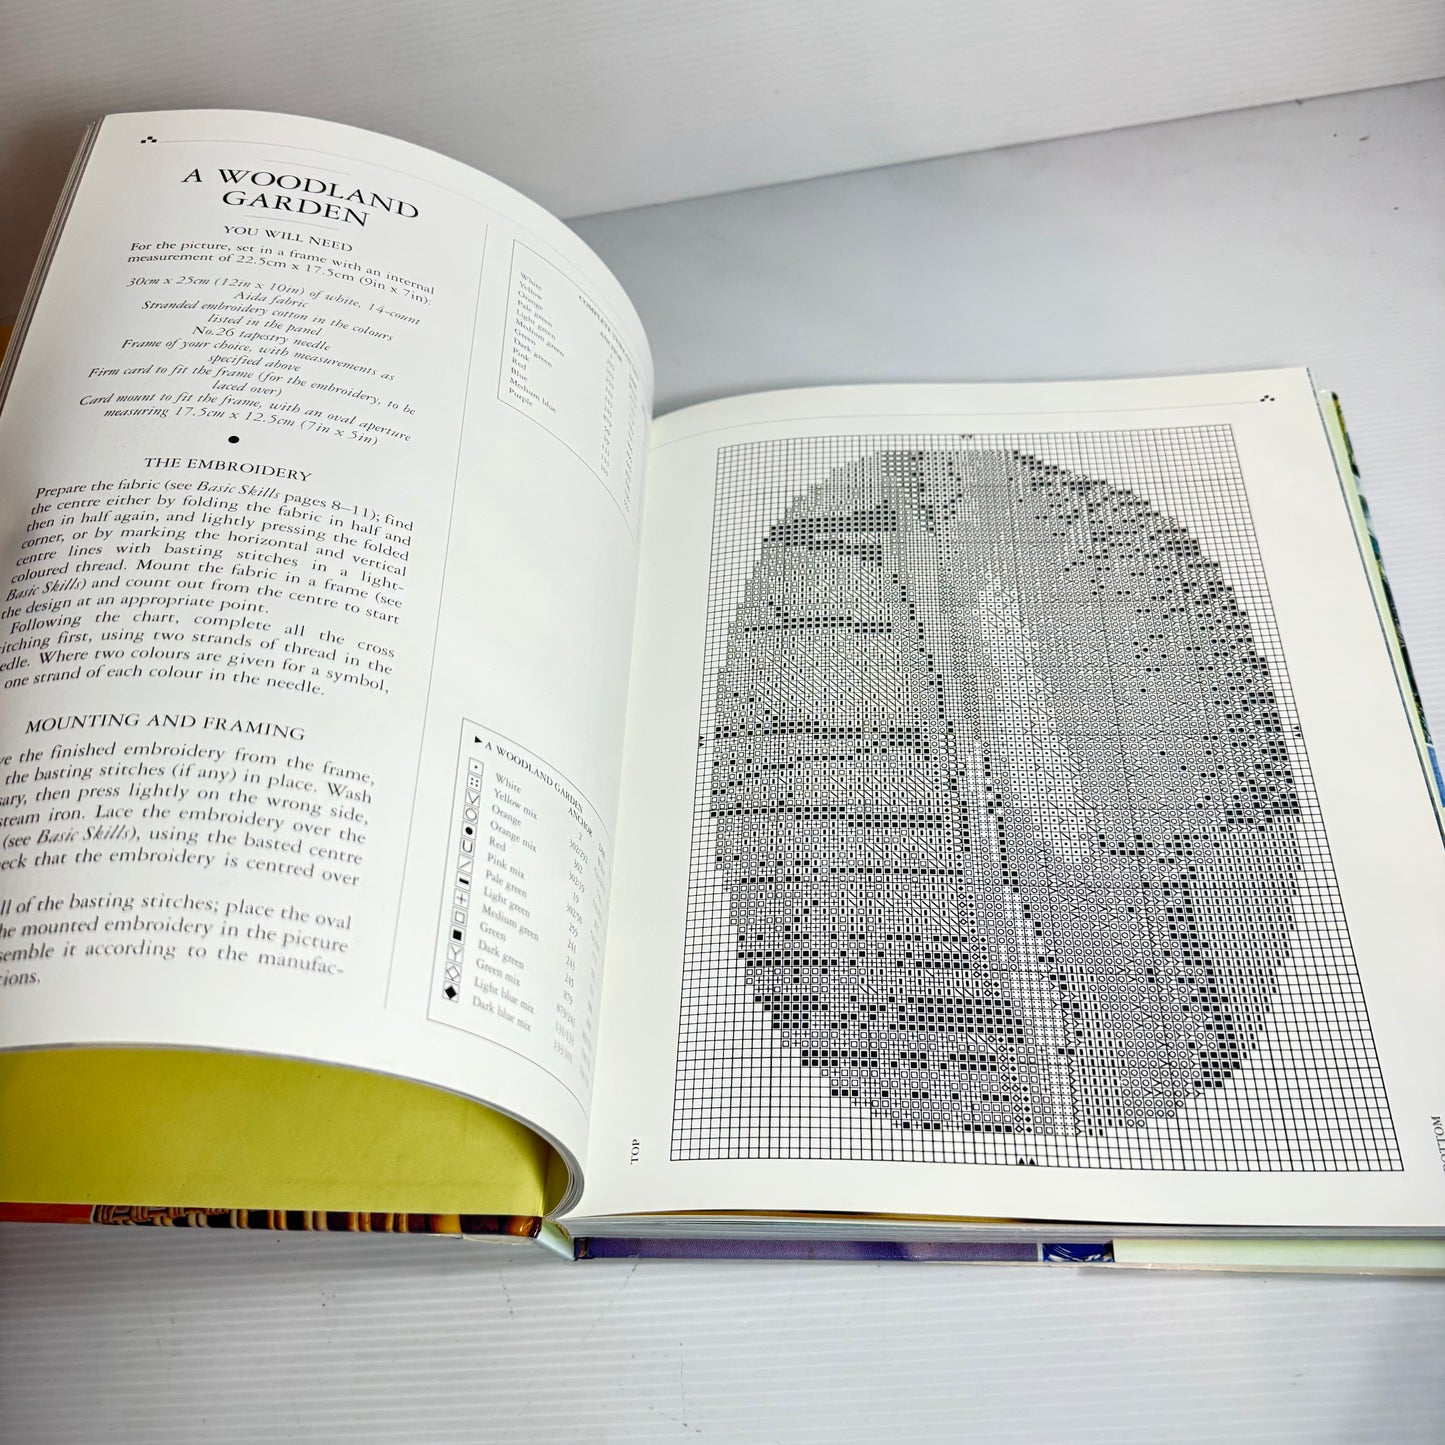 A WOODLAND
GARDEN
YOU WILL NEED
For the picture, set in a frame with an internal
measurement of 22.5cm x 17.5cm (9in x 7in):
30cm x 25cm (12in x 10in) of white, 14-count
Aida fabric
Stranded embroidery cotton in the colours
listed in the panel
No.26 tapestry needle
Frame of your choice, with measurements as
specified above
Firm card to fit the frame (for the embroidery, to be
laced over)
Card mount to fit the frame, with an oval aperture
measuring 17.5cm x 12.5cm (7in x 5in)
THE EMBROIDERY
Prepare the fabric (see Basic Skills pages 8–11); find
the centre either by folding the fabric in half and
then in half again, and lightly pressing the folded
corner, or by marking the horizontal and vertical
centre lines with basting stitches in a light-
coloured thread. Mount the fabric in a frame (see
Basic Skills) and count out from the centre to start
the design at an appropriate point.
Following the chart, complete all the cross
itching first, using two strands of thread in the
edle. Where two colours are given for a symbol,
one strand of each colour in the needle.
MOUNTING AND FRAMING
ve the finished embroidery from the frame,
the basting stitches (if any) in place. Wash
sary, then press lightly on the wrong side,
steam iron. Lace the embroidery over the
(see Basic Skills), using the basted centre
eck that the embroidery is centred over
ll of the basting stitches; place the oval
he mounted embroidery in the picture
semble it according to the manufac-
tions.
White
Yellow
Orange
Pale green
Light green
Medium green
Green
Dark green
Pink
Red
Blue
Medium blue
Purple
A WOODLAND GARDEN
ANCHOR
White
Yellow mix
Orange
Orange mix
Red
Pink mix
Pale green
Light green
Medium green
Green
Dark green
Green mix
Light blue mix
Dark blue mix
TOP
BOTTOM